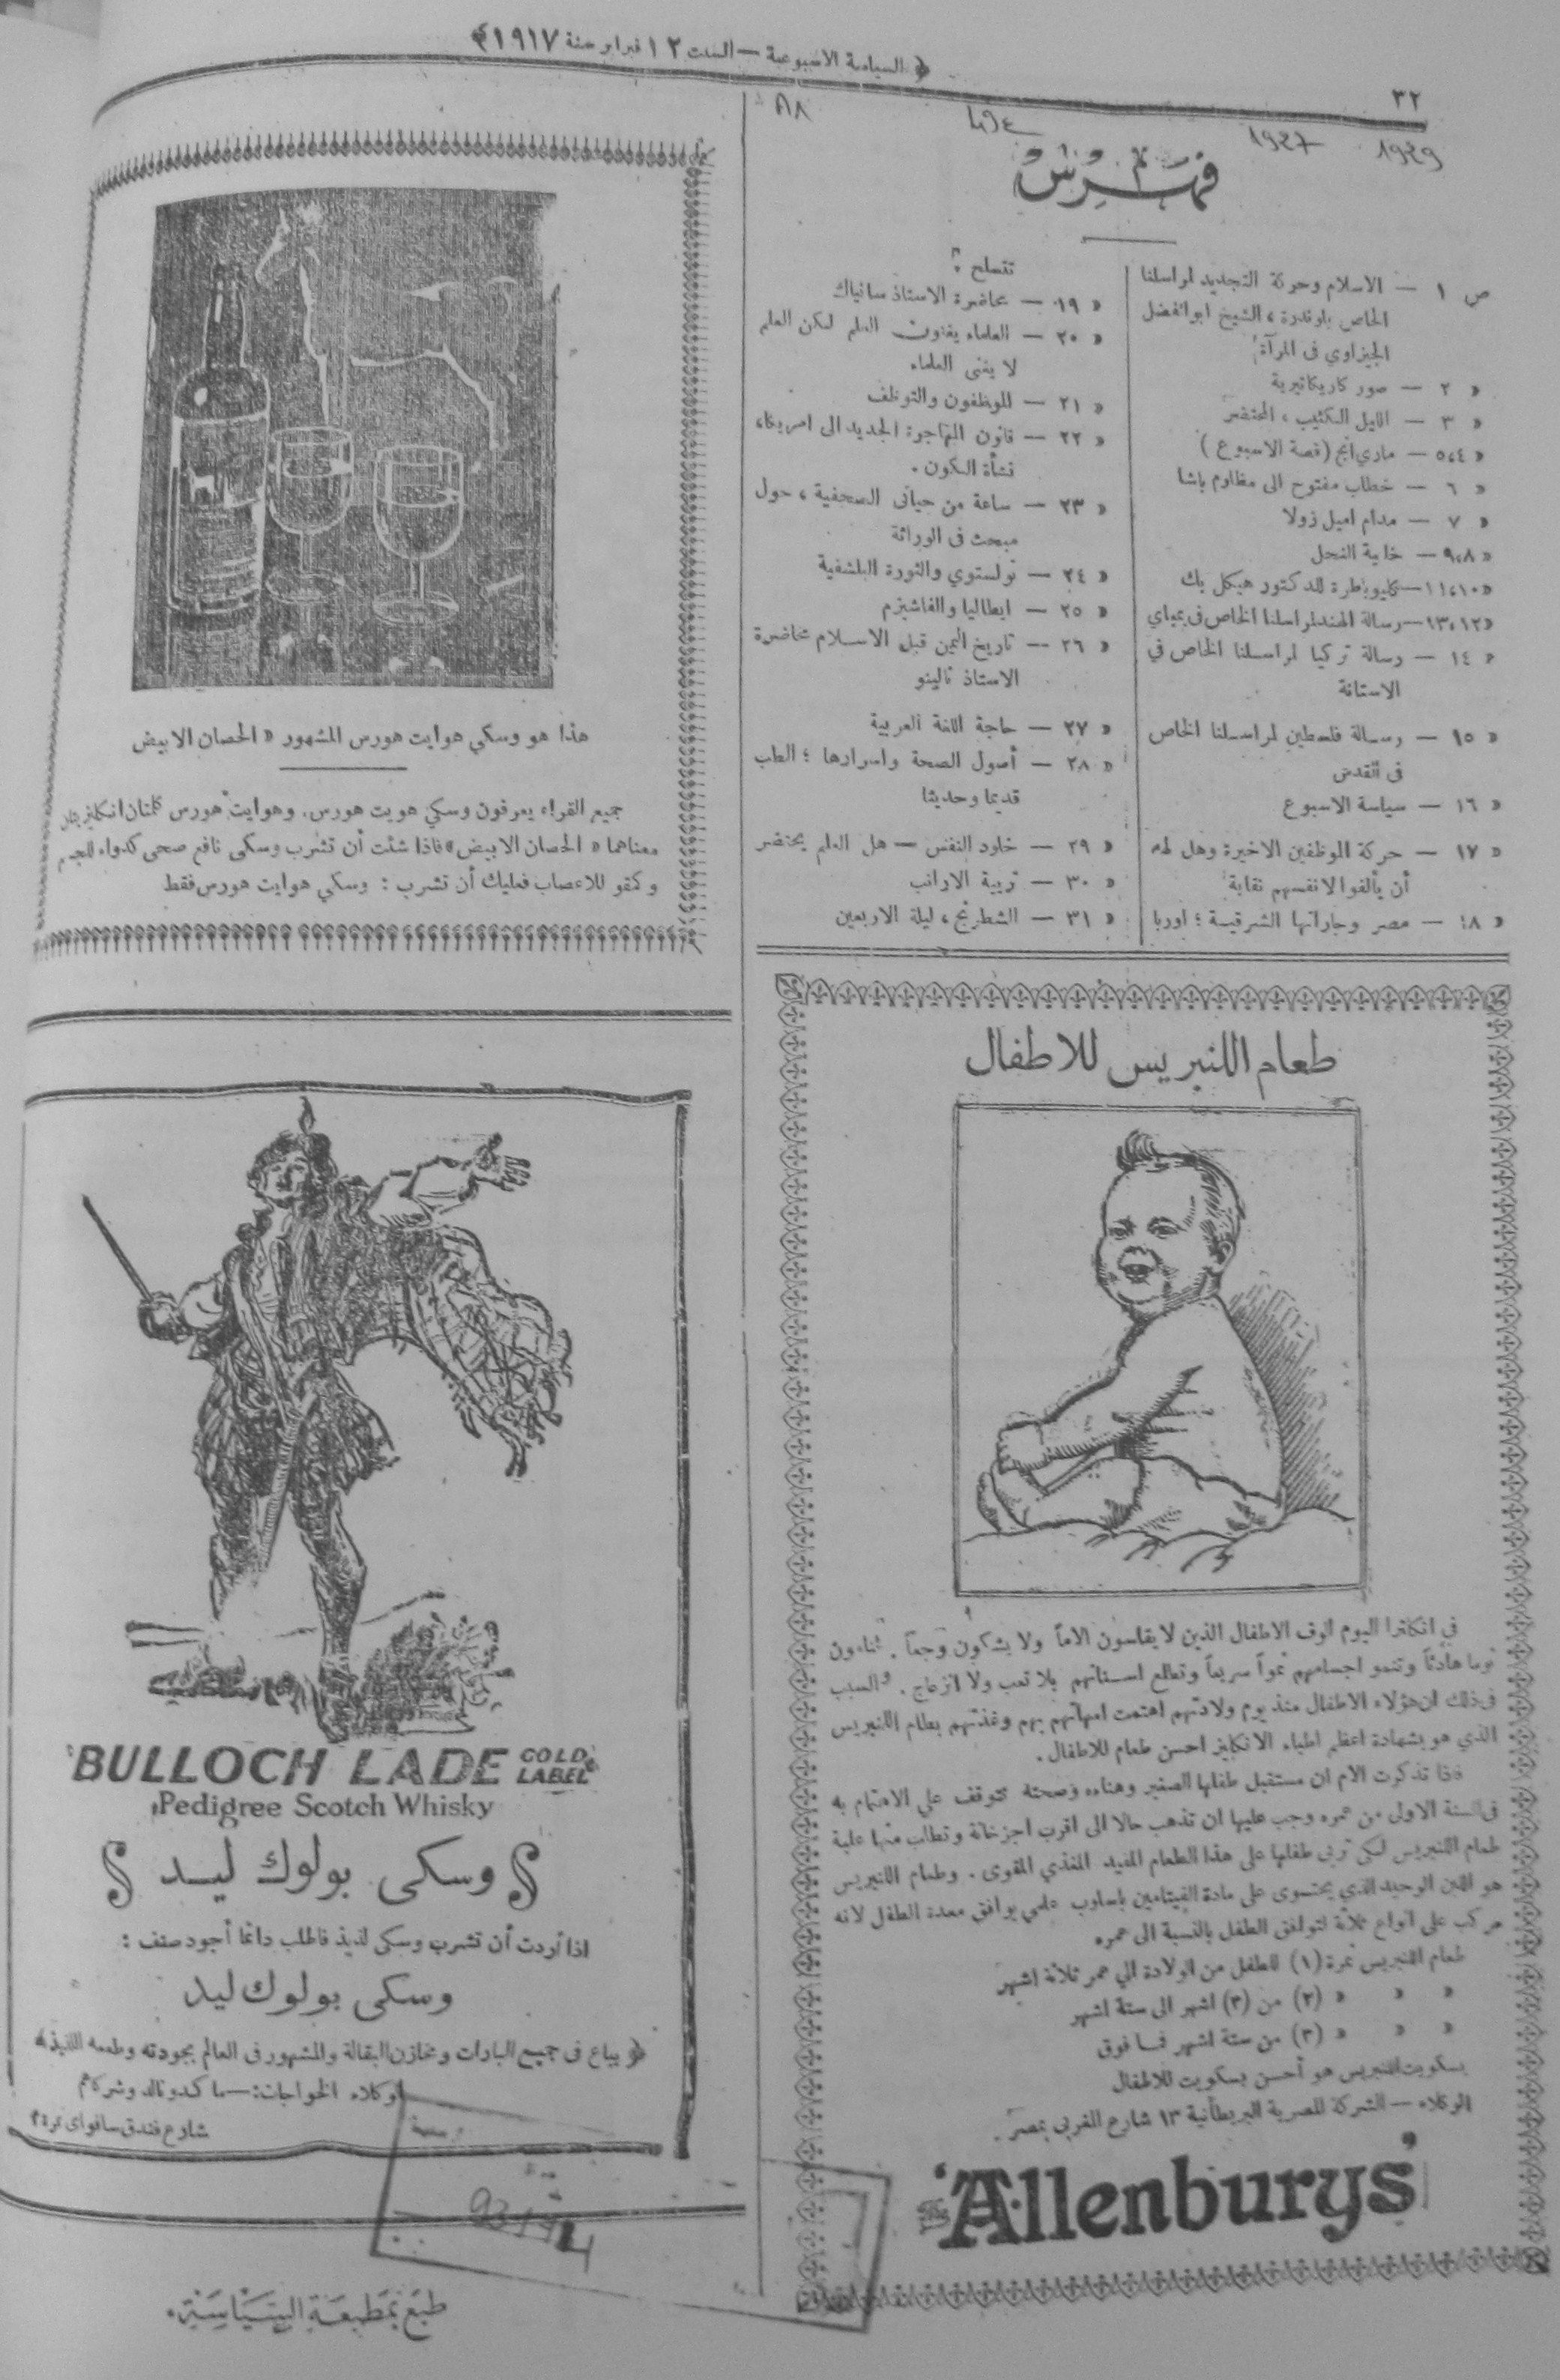 ٣٢
﴿ السياسة الاسبوعية — السبت ١٢ فبراير سنة ١٩١٧ ﴾
1929
1927
٨٨
فهرس
ص ١ — الاسلام وحركة التجديد لمراسلنا
الخاص بلوندرة ، الشيخ ابو الفضل
الجيزاوي في المرآة
« ٢ — صور كاريكاتيرية
« ٣ — الليل الكئيب ، المحتضر
« ٥،٤ — ماري آنج (قصة الاسبوع)
« ٦ — خطاب مفتوح الى مظلوم باشا
« ٧ — مدام اميل زولا
« ٩،٨ — خلية النحل
« ١١،١٠ — كليوباطرة للدكتور هيكل بك
« ١٣،١٢ — رسالة الهند لمراسلنا الخاص في بمباي
« ١٤ — رسالة تركيا لمراسلنا الخاص في
الاستانة
« ١٥ — رسالة فلسطين لمراسلنا الخاص
في القدس
« ١٦ — سياسة الاسبوع
« ١٧ — حركة الموظفين الاخيرة وهل لهم
أن يألفوا لانفسهم نقابة
« ١٨ — مصر وجاراتها الشرقية ؛ اوربا
تتسلح ؟
« ١٩ — محاضرة الاستاذ سانياك
« ٢٠ — العلماء يفنون العلم لكن العلم
لا يفنى العلماء
« ٢١ — الموظفون والتوظف
« ٢٢ — قانون المهاجرة الجديد الى امريكا،
نشأة الكون .
« ٢٣ — ساعة من حياتى الصحفية ، حول
مبحث فى الوراثة
« ٢٤ — تولستوي والثورة البلشفية
« ٢٥ — ايطاليا والفاشيزم
« ٢٦ — تاريخ اليمن قبل الاسلام محاضرة
الاستاذ نالينو
« ٢٧ — حاجة اللغة العربية
« ٢٨ — أصول الصحة واسرارها ؛ الطب
قديما وحديثا
« ٢٩ — خلود النفس — هل العلم يحتضر
« ٣٠ — تربية الارانب
« ٣١ — الشطرنج ، ليلة الاربعين
طعام اللنبريس للاطفال
في انكلترا اليوم الوف الاطفال الذين لا يقاسون الاماً ولا يشكون وجعاً . ينامون
نوما هادئاً وتنمو اجسامهم نمواً سريعاً وتطلع اسنانهم بلا تعب ولا انزعاج . والسبب
في ذلك ان هؤلاء الاطفال منذ يوم ولادتهم اهتمت امهاتهم بهم وغذتهم بطعام اللنبريس
الذي هو بشهادة اعظم اطباء الانكليز احسن طعام للاطفال .
فاذا تذكرت الام ان مستقبل طفلها الصغير وهناءه وصحته تتوقف علي الاهتمام به
فى السنة الاولى من عمره وجب عليها ان تذهب حالا الى اقرب اجزخانة وتطلب منها علبة
طعام اللنبريس لكى تربي طفلها على هذا الطعام المفيد المغذي المقوى . وطعام اللنبريس
هو اللبن الوحيد الذي يحتوى على مادة الفيتامين باسلوب علمي يوافق معدة الطفل لانه
مركب على انواع ثلاثة لتوافق الطفل بالنسبة الى عمره
طعام اللنبريس نمرة (١) للطفل من الولادة الي عمر ثلاثة اشهر
« « « (٢) من (٣) اشهر الى ستة اشهر
« « « (٣) من ستة اشهر فما فوق
بسكويت اللنبريس هو أحسن بسكويت للاطفال
الوكلاء — الشركة المصرية البريطانية ١٣ شارع المغربي بمصر .
The 'Allenburys'
هذا هو وسكي هوايت هورس المشهور « الحصان الابيض
جميع القراء يعرفون وسكي هويت هورس . وهوايت هورس كلمتان انكليزيتان
معناهما « الحصان الابيض » فاذا شئت أن تشرب وسكى نافع صحى كدواء للجسم
وكمقو للاعصاب فعليك أن تشرب : وسكي هوايت هورس فقط
BULLOCH LADE GOLD LABEL
Pedigree Scotch Whisky
وسكى بولوك ليد
اذا أردت أن تشرب وسكى لذيذ فاطلب دائما أجود صنف :
وسكى بولوك ليد
﴿ يباع فى جميع البارات ومخازن البقالة والمشهور فى العالم بجودته وطعمه اللذيذ ﴾
وكلاء الخواجات :— ماكدونالد وشركاهم
شارع فندق سافواى نمرة ٢
طبع بمطبعة السياسة